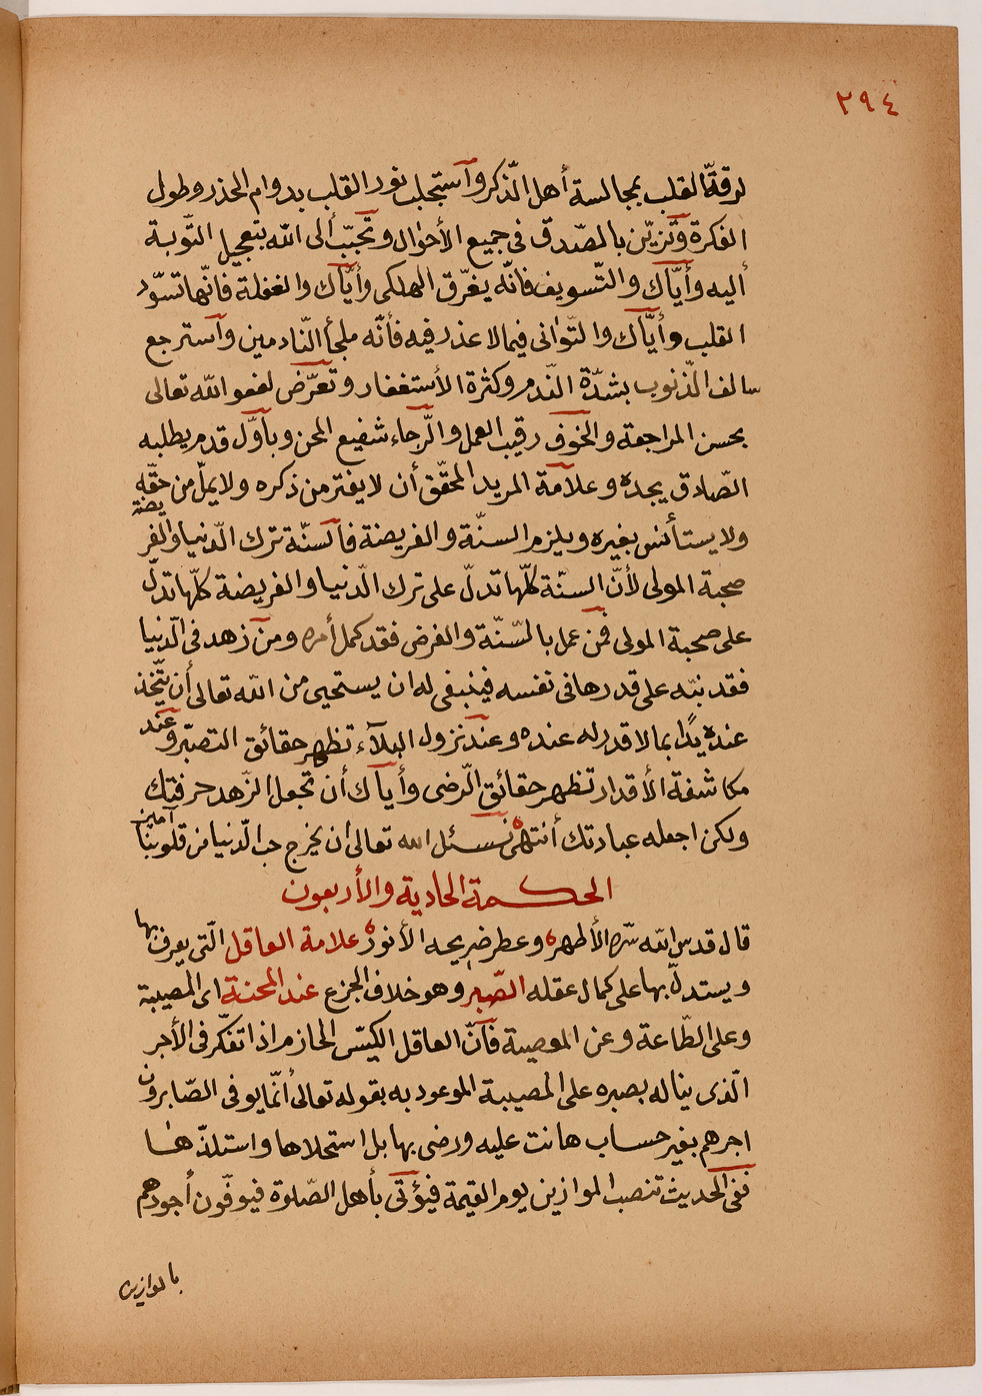 ٢٩٤
لرقة القلب بمجالسة أهل الذّكر وآستجلب نور القلب بدوام الحذر وطول
الفكرة وتزيّن بالصّدق فى جميع الأحوال وتحبّب ألى اللّه بتعجيل التّوبة
أليه وأيّاك والتّسويف فانّه يغرّق الهلكى وأيّاك والغفلة فانّها تسوّد
القلب وأيّاك والتّوانى فيما لا عذر فيه فأنّه ملجأ النّادمين وآسترجع
سالف الذّنوب بشدّة النّدم وكثرة الأستغفار وتعرّض لعفو اللّه تعالى
بحسن المراجعة والخوف رقيب العمل والرّجاء شفيع المحن وبأوّل قدم يطلبه
الصّادق يجده وعلامة المريد المحقّق أن لا يفتر من ذكره ولا يملّ من حقّه
ولا يستأنس بغيره ويلزم السنّة والفريضة فآلسنّة ترك الدّنيا والفريضة
صحبة المولى لأنّ السنّة كلّها تدلّ على ترك الدّنيا والفريضة كلّها تدلّ
على صحبة المولى فمن عمل بالسّنّة والفرض فقد كمل أمره ومن زهد فى الدّنيا
فقد نبّه على قدرها فى نفسه فينبغى له ان يستحيى من اللّه تعالى أن يتّخذ
عنده يدًا بما لا قدر له عنده وعند نزول البلآء تظهر حقائق التصبّر وعند
مكاشفة الأقدار تظهر حقائق الرّضى وأياك أن تجعل الزّهد حرفتك
ولكن اجعله عبادتك أنتهى نسئل اللّه تعالى أن يخرج حب الدّنيا من قلوبنا آمين
الحكمة الحادية والأربعون
قال قدس اللّه سرّه الأطهر وعطر ضريحه الأنور علامة العاقل الّتى يعرف بها
ويستدلّ بها على كمال عقله الصّبر وهو خلاف الجزع عند المحنة اى المصيبة
وعلى الطّاعة وعن المعصية فآنّ العاقل الكيّس الحازم اذا تفكّر فى الأجر
الّذى يناله بصبره على المصيبة الموعود به بقوله تعالى أنّما يوفى الصّابرون
اجرهم بغير حساب هانت عليه ورضى بها بل استحلاها واستلذّها
ففى الحديث تنصب الموازين يوم القيمة فيؤتى بأهل الصّلوة فيوفّون أجورهم
بالموازين